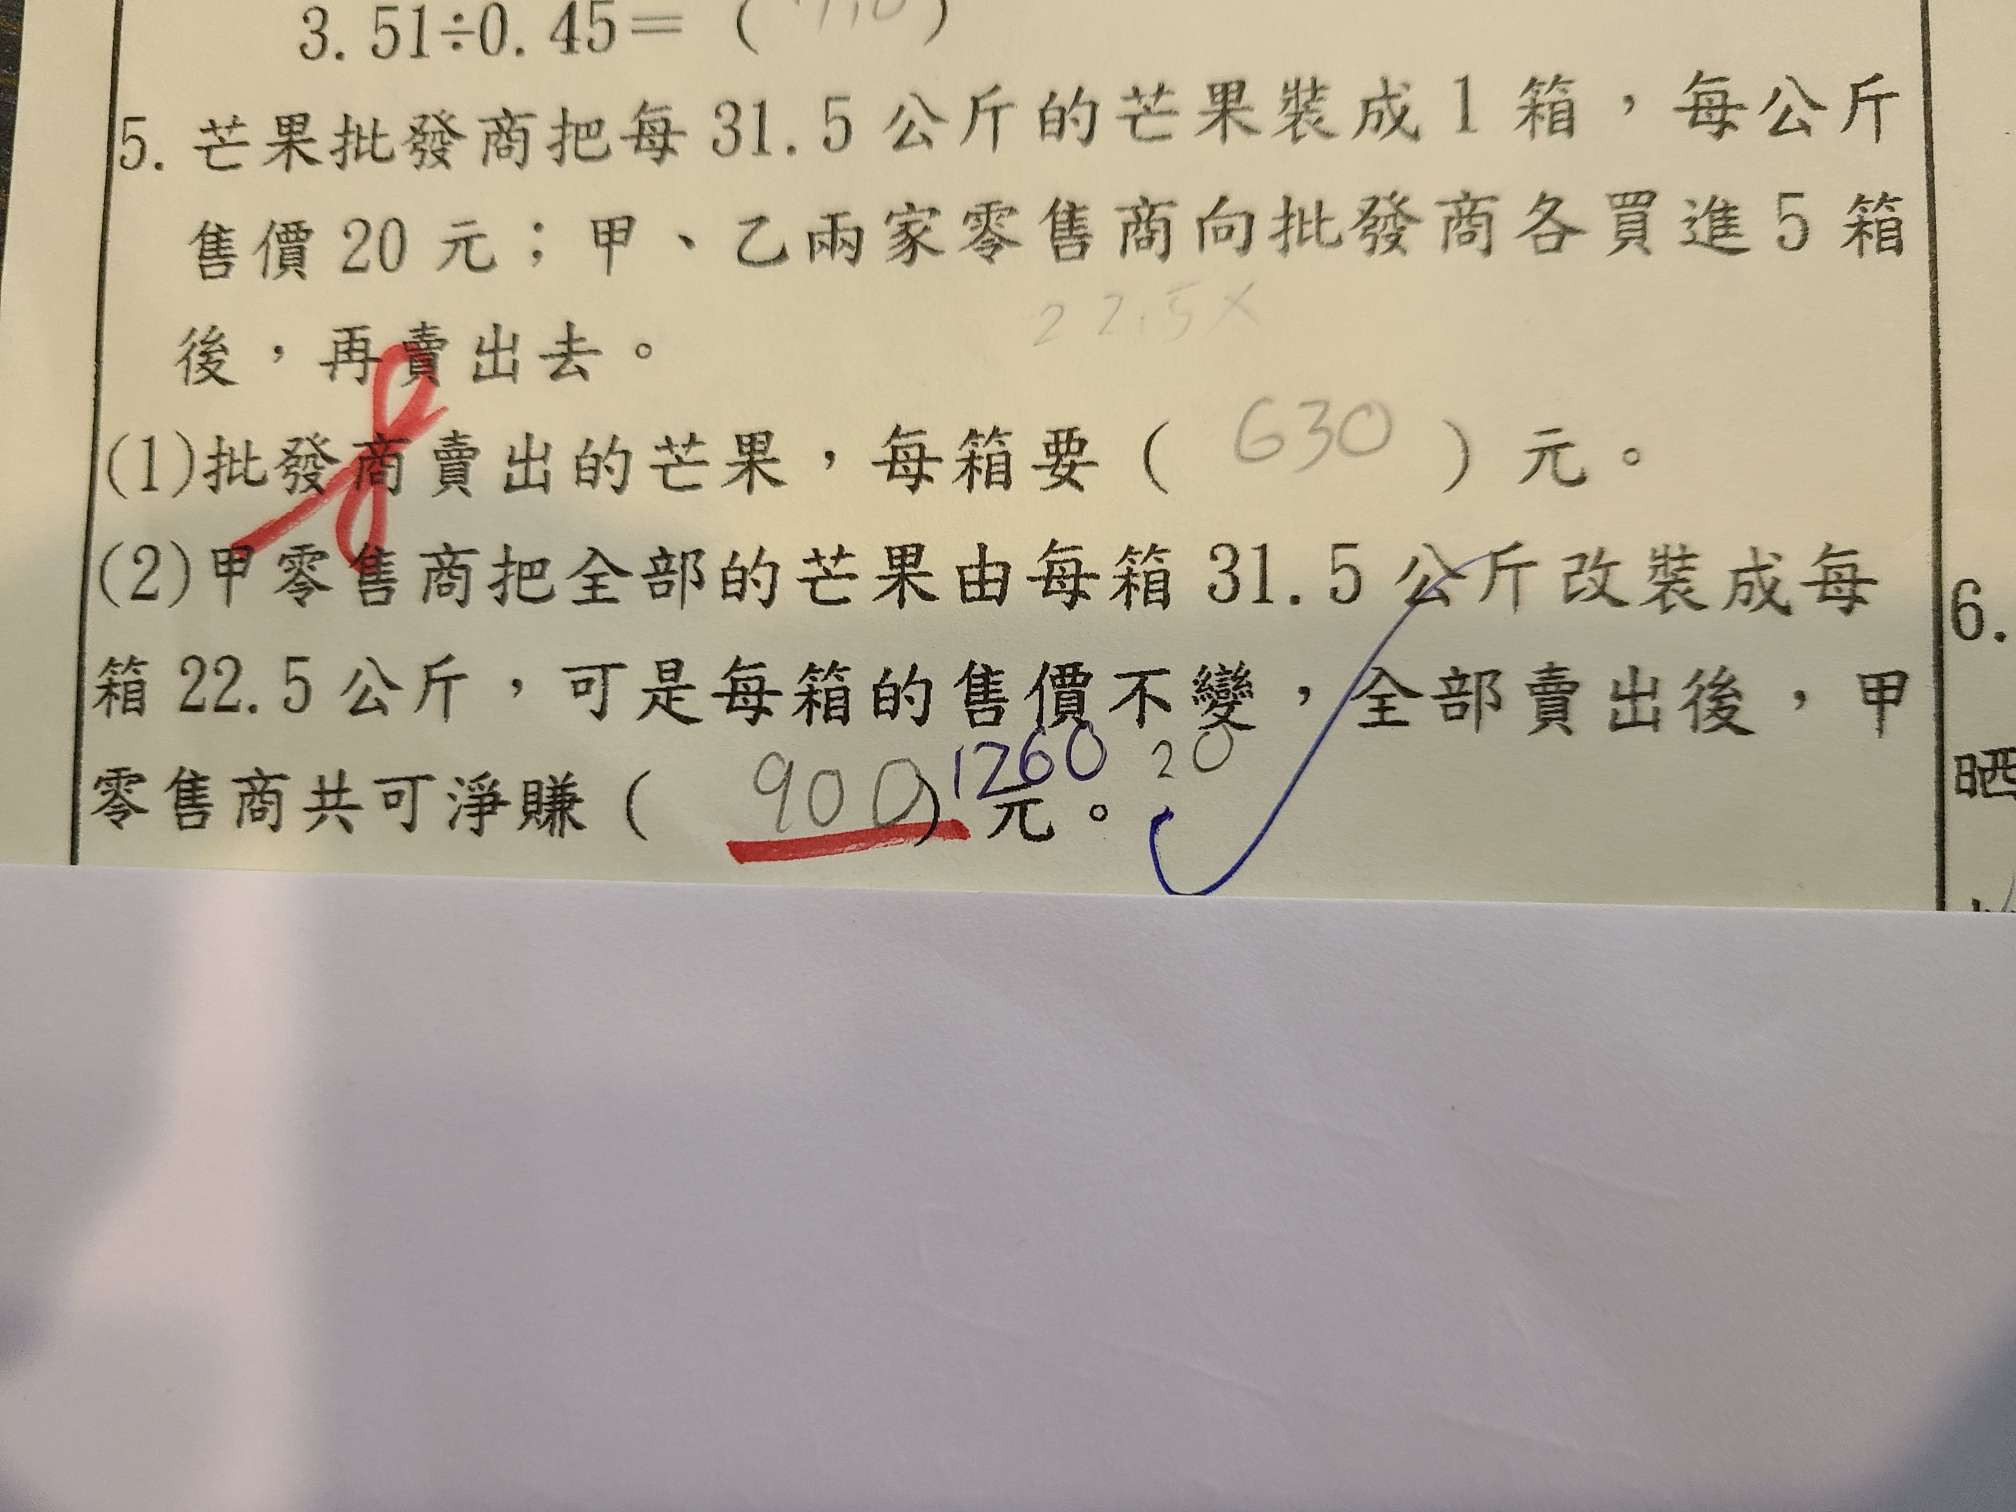 3.51÷0.45=( )
5.芒果批發商把每31.5公斤的芒果裝成1箱，每公斤
售價20元；甲、乙兩家零售商向批發商各買進5箱
後，再賣出去。
22.5×
(1)批發商賣出的芒果，每箱要( 630 )元。
(2)甲零售商把全部的芒果由每箱31.5公斤改裝成每
箱22.5公斤，可是每箱的售價不變，全部賣出後，甲
零售商共可淨賺( 900 )元。
1260 20
6.
晒